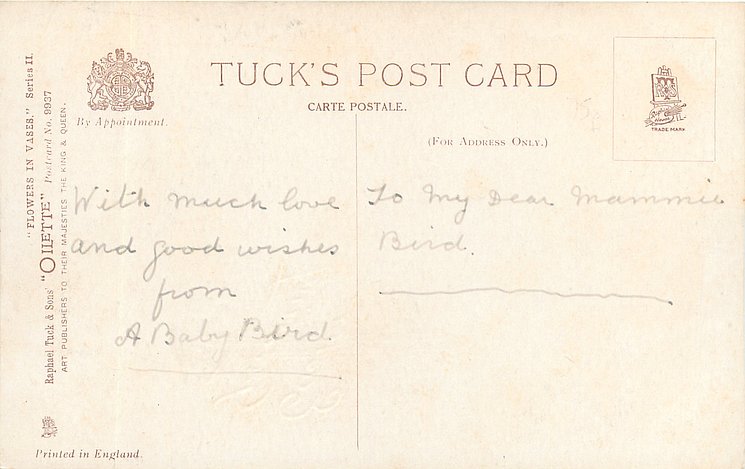 TUCK'S POST CARD
CARTE POSTALE.
(FOR ADDRESS ONLY.)
By Appointment.
TRADE MARK
"FLOWERS IN VASES." Series II.
Raphael Tuck & Sons' "OILETTE" Postcard No. 9937
ART PUBLISHERS TO THEIR MAJESTIES THE KING & QUEEN.
With much love
and good wishes
from
A Baby Bird
To My Dear Mammie
Bird.
Printed in England.